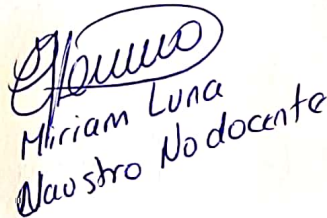 Miriam Luna
Naustro Nodocente